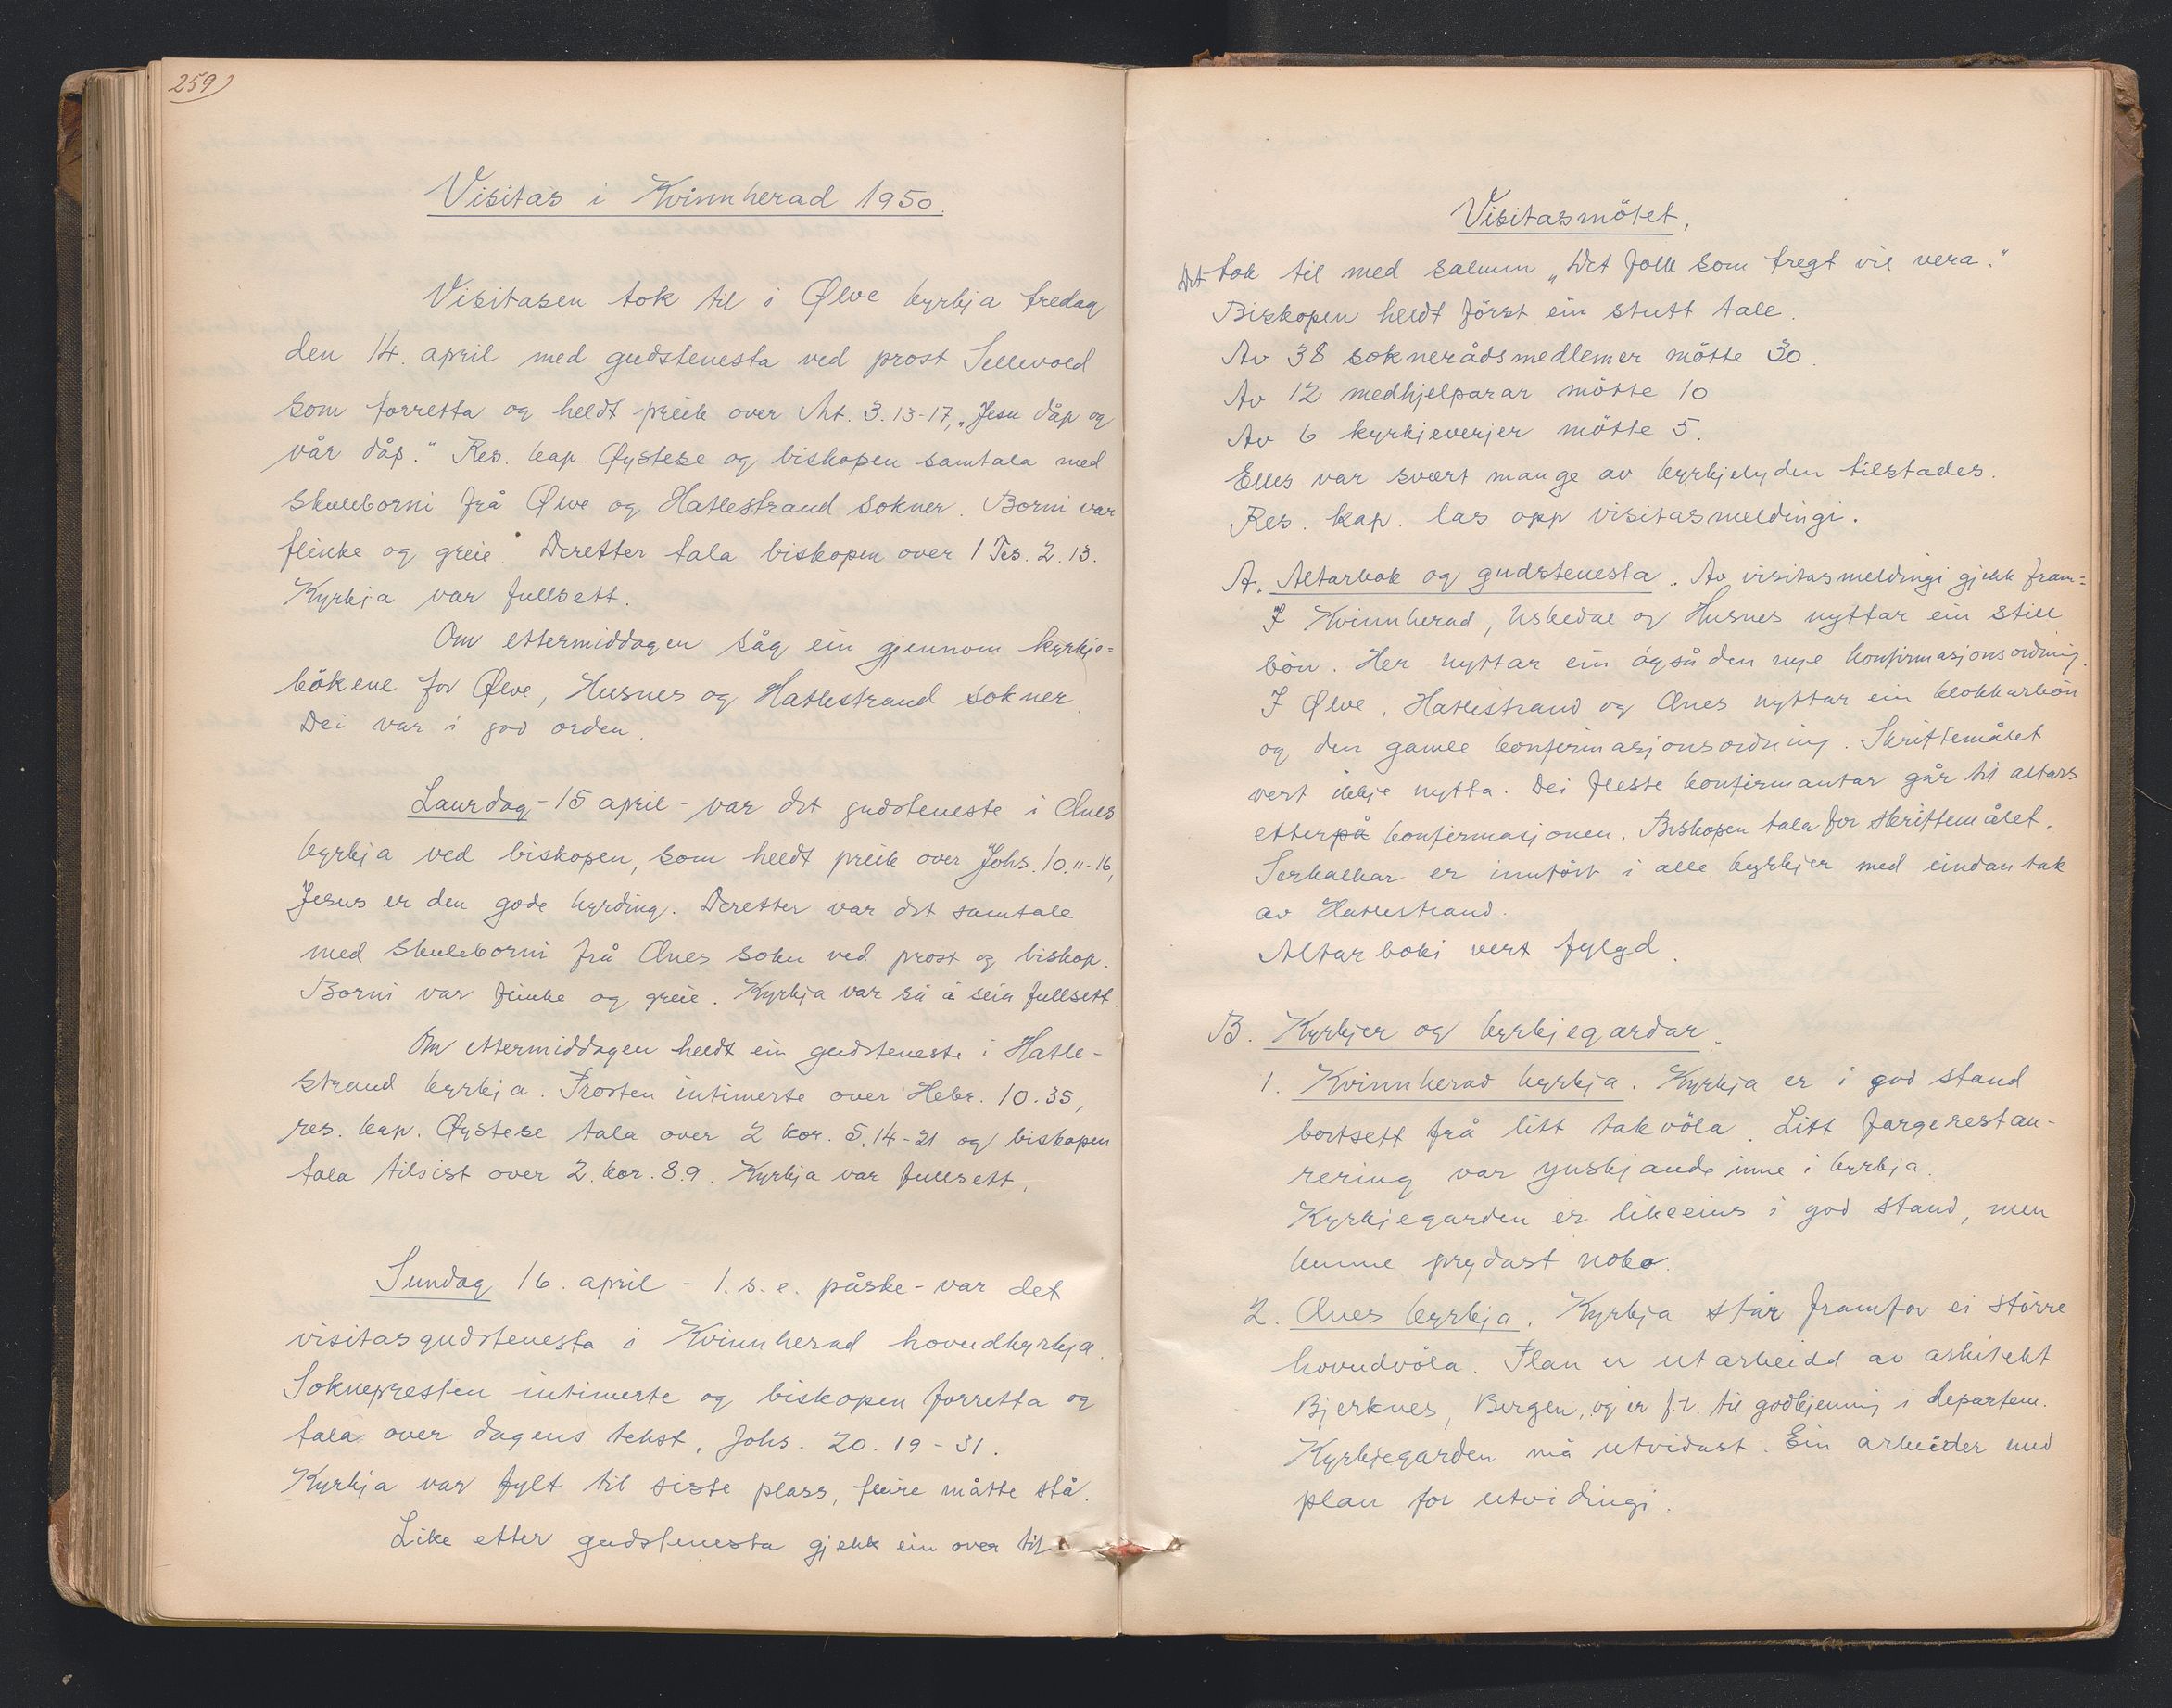 259)
Visitas i Kvinnherad 1950.
Visitasen tok til i Ølve kyrkja fredag
den 14. april med gudstenesta ved prost Sellevold
som forretta og heldt preik over Mt. 3.13-17, „Jesu dåp og
vår dåp." Res. kap. Øystese og biskopen samtala med
skuleborni frå Ølve og Hatlestrand sokner. Borni var
flinke og greie. Deretter tala biskopen over 1 Tes. 2.13.
Kyrkja var fullsett.
Om ettermiddagen såg ein gjennom kyrkje=
bökene for Ølve, Husnes og Hatlestrand sokner.
Dei var i god orden.
Laurdag - 15 april - var det gudsteneste i Ånes
kyrkja ved biskopen, som heldt preik over Johs. 10.11-16,
Jesus er den gode hyrding. Deretter var det samtale
med skuleborni frå Ånes sokn ved prost og biskop.
Borni var flinke og greie. Kyrkja var så å seia fullsett.
Om ettermiddagen heldt ein gudsteneste i Hatle-
strand kyrkja. Prosten intimerte over Hebr. 10.35,
res. kap. Øystese tala over 2 Kor. 5.14-21 og biskopen
tala tilsist over 2. Kor. 8.9. Kyrkja var fullsett.
Sundag 16. april - 1. s. e. påske - var det
visitasgudstenesta i Kvinnherad hovudkyrkja.
Soknepresten intimerte og biskopen forretta og
tala over dagens tekst, Johs. 20.19-31.
Kyrkja var fylt til siste plass, fleire måtte stå.
Like etter gudstenesta gjekk ein over til
Visitasmötet.
Det tok til med salmen „Det folk som fregt vil vera."
Biskopen heldt först ein stutt tale.
Av 38 soknerådsmedlemer mötte 30.
Av 12 medhjelparar mötte 10
Av 6 kyrkjeverjer mötte 5.
Elles var svært mange av kyrkjelyden tilstades.
Res. kap. las opp visitasmeldingi.
A. Altarbok og gudstenesta. Av visitasmeldingi gjekk fram=
I Kvinnherad, Uskedal og Husnes nyttar ein still
bön. Her nyttar ein også den nye konfirmasjonsordning.
I Ølve, Hatlestrand og Ånes nyttar ein klokkarbön
og den gamle konfirmasjonsordning. Skriftemålet
vert ikkje nytta. Dei fleste konfirmantar går til altars
etterpå konfirmasjonen. Biskopen tala for skriftemålet.
Serkalkar er innfört i alle kyrkjer med eindantak
av Hatlestrand.
Altarboki vert fylgd.
B. Kyrkjer og kyrkjegardar.
1. Kvinnherad kyrkja. Kyrkja er i god stand
bortsett frå litt takvöla. Litt fargerestau-
rering var ynskjande inne i kyrkja.
Kyrkjegarden er likeeins i god stand, men
kunne prydast noko.
2. Ånes kyrkja. Kyrkja står framfor ei större
hovudvöla. Plan er utarbeidd av arkitekt
Bjerknes, Bergen, og er f.t. til godkjenning i departem.
Kyrkjegarden må utvidast. Ein arbeider med
plan for utvidingi.